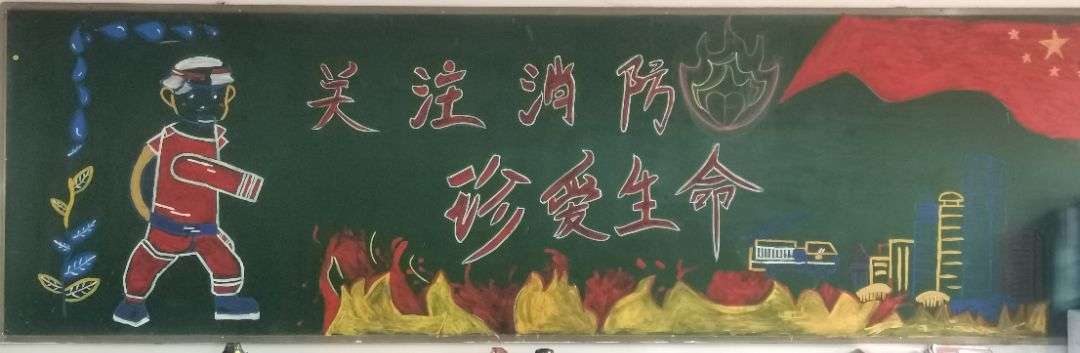 关注消防
珍爱生命